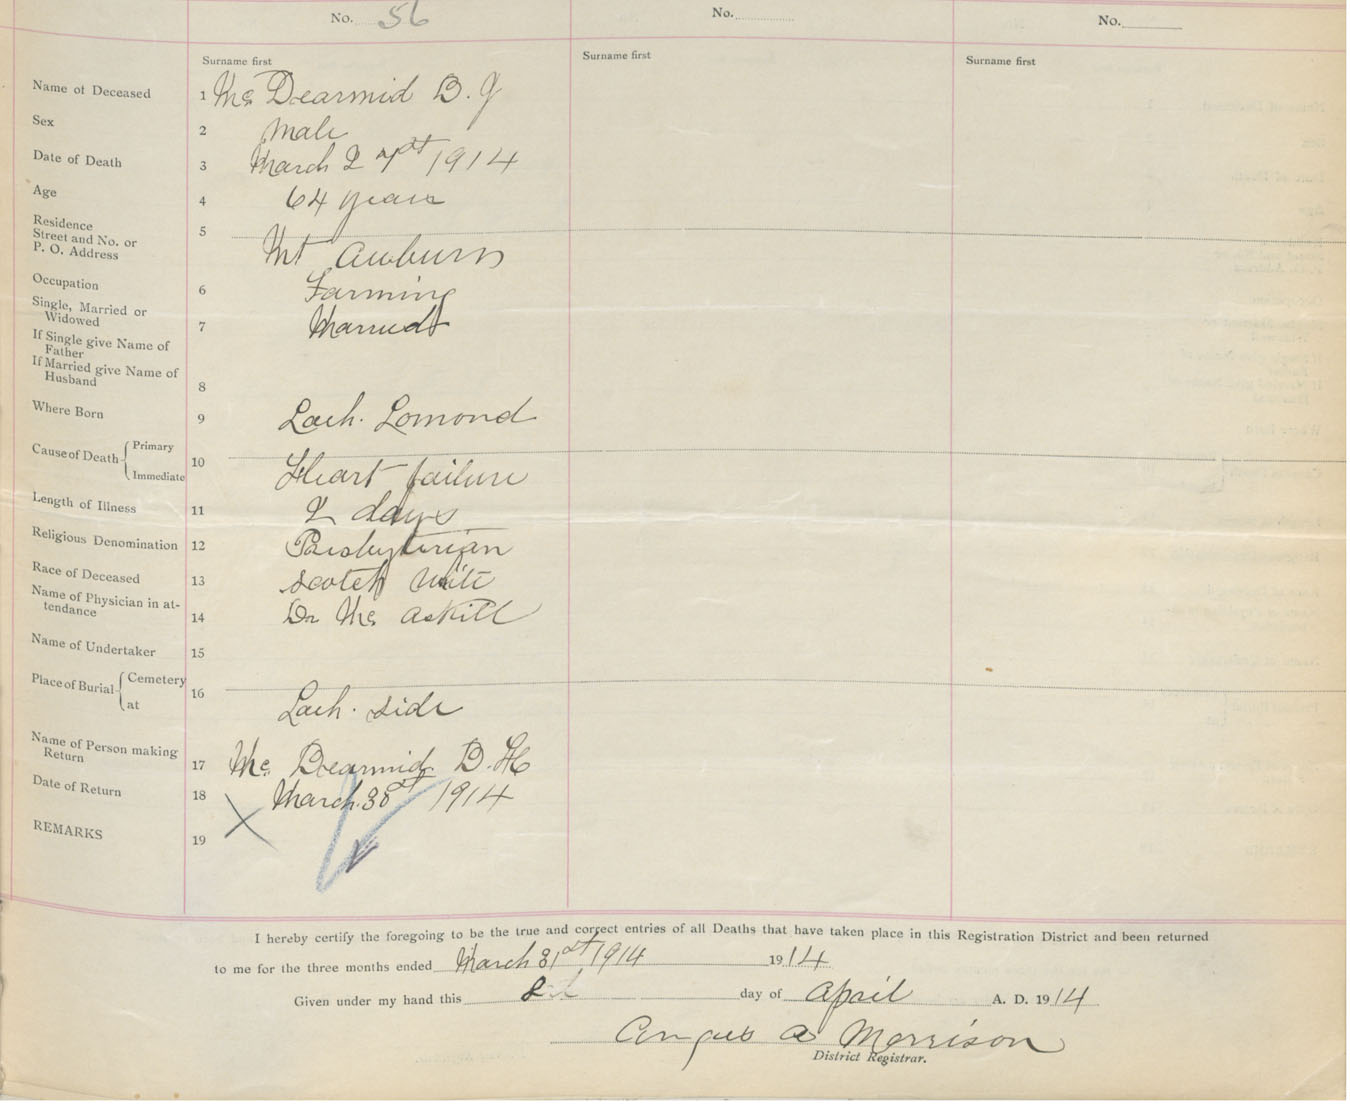 No. 56 No. No.
Surname first Surname first Surname first
Name of Deceased 1 Mc Dearmid B. J
Sex 2 Male
Date of Death 3 March 2 1914
Age 4 64 years
Residence
Street and No. or 5
P. O. Address Mt Auburn
Occupation 6 Farming
Single, Married or
Widowed 7 Married
If Single give Name of
Father
If Married give Name of
Husband 8
Where Born 9 Loch. Lomond
Cause of Death Primary 10
Immediate Heart failure
Length of Illness 11 2 days
Religious Denomination 12 Presbyterian
Race of Deceased 13 Scotch wite
Name of Physician in at-
tendance 14 Dr Mc Askill
Name of Undertaker 15
Place of Burial Cemetery 16
at Loch. side
Name of Person making
Return 17 Mc Dearmid D. H
Date of Return 18 March 1914
REMARKS 19
I hereby certify the foregoing to be the true and correct entries of all Deaths that have taken place in this Registration District and been returned
to me for the three months ended March 31st 1914 1914
Given under my hand this day of April A. D. 1914
Angus A Morrison
District Registrar.